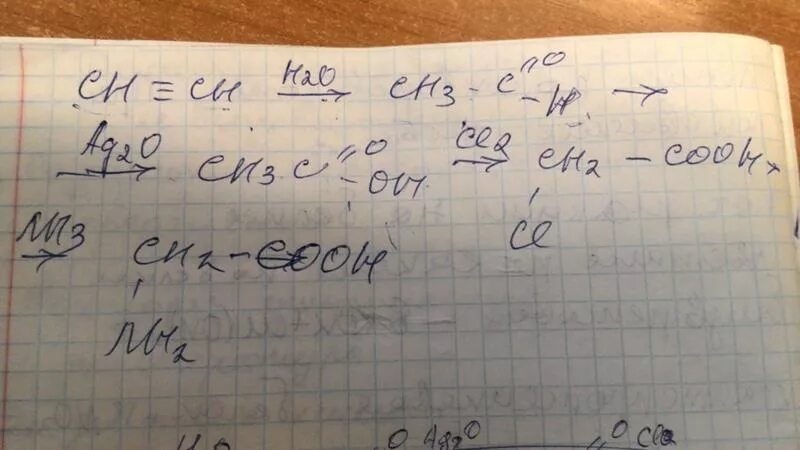 CH ≡ CH —H2O→ CH3 - C =O -H →
—Ag2O→ CH3 C =O -OH —Cl2→ CH2 - COOH →
Cl
NH3 → CH2 - COOH
NH2
O Ag2O =O Cl2